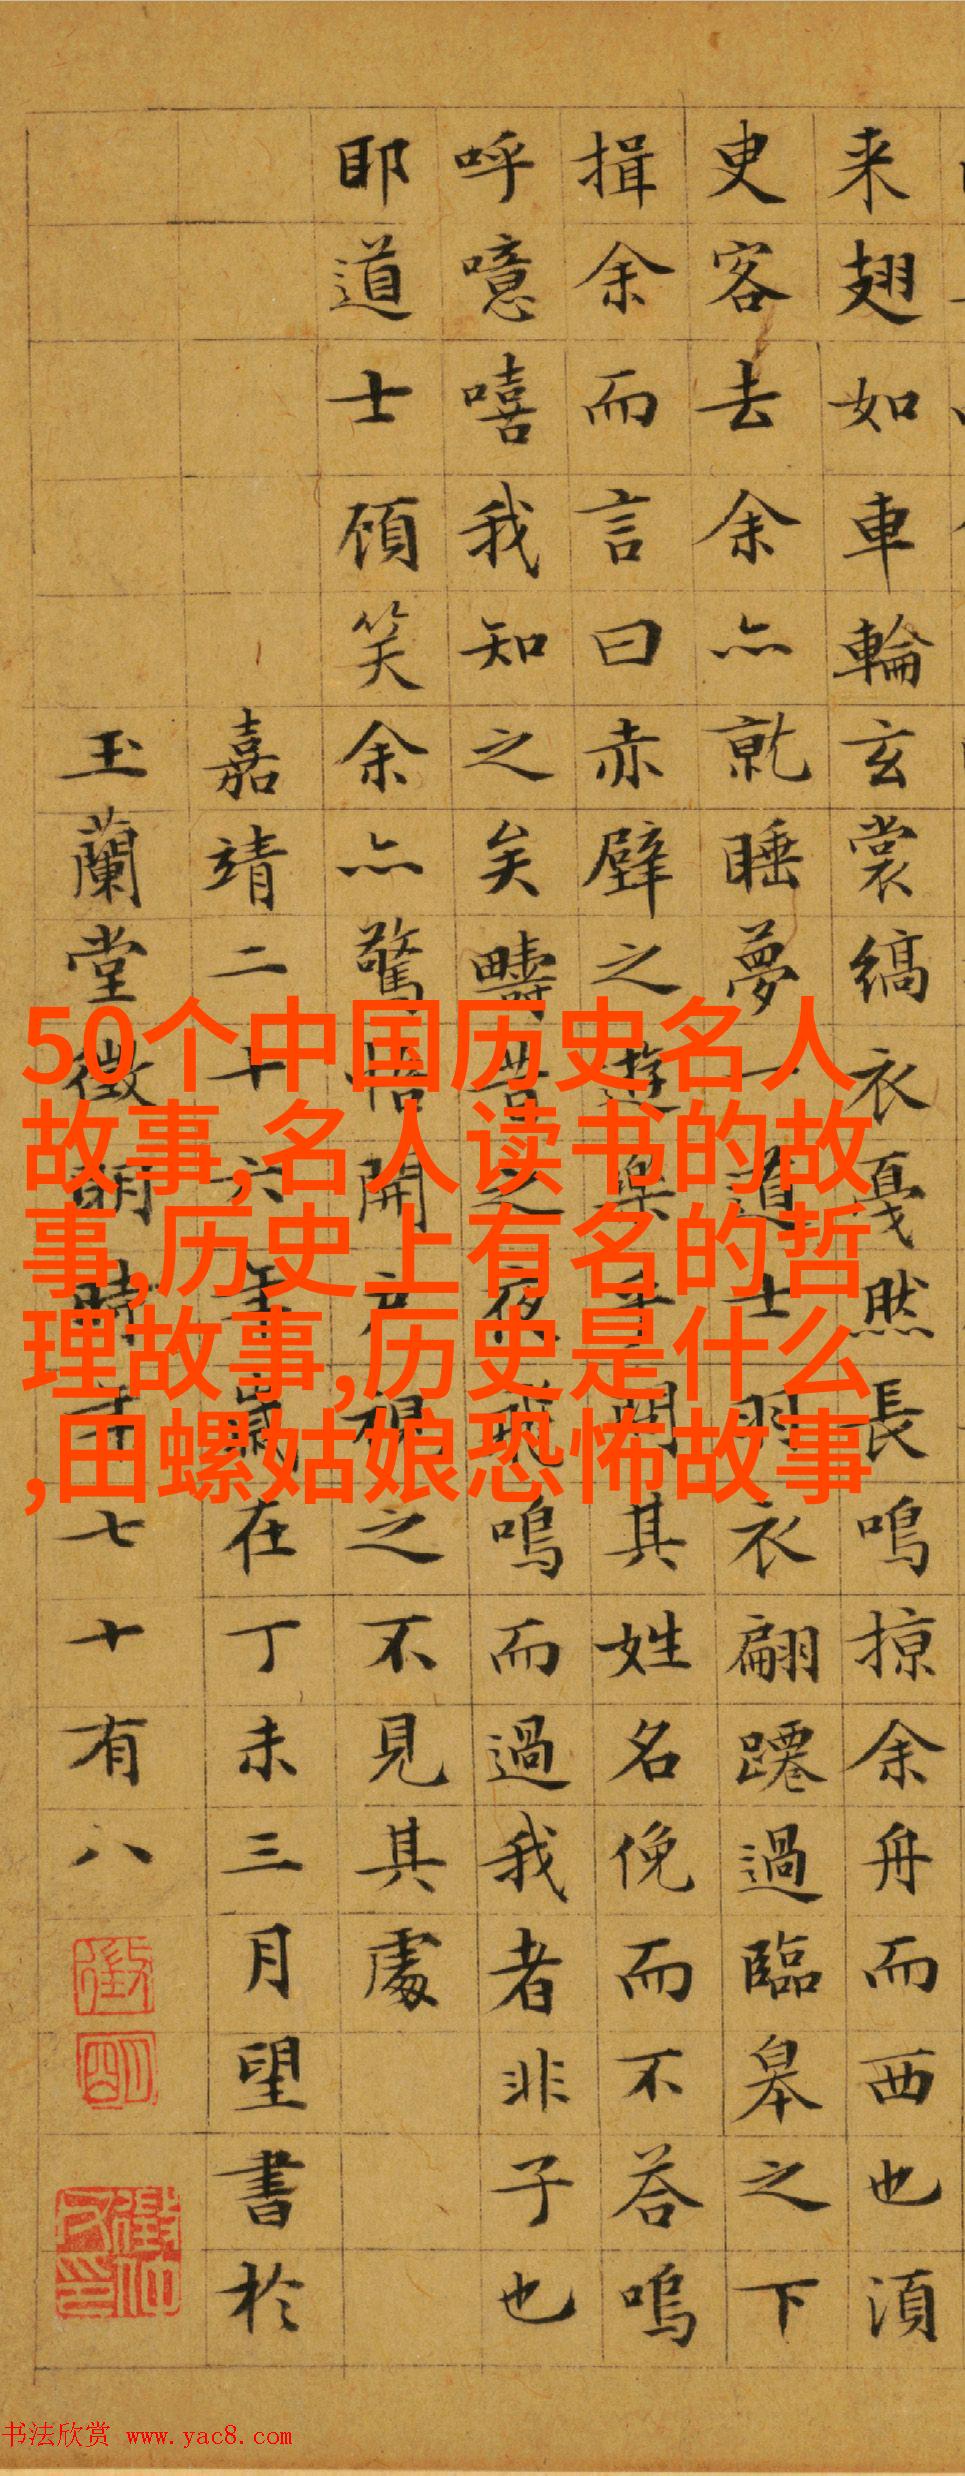 来翅如車輪玄裳縞衣戛然長鳴掠余舟而西也湏
叓客去余亦就睡夢一道士羽衣翩躚過臨皋之下
揖余而言曰赤壁之遊樂乎問其姓名俛而不荅嗚
呼噫嘻我知之矣疇昔之夜飛鳴而過我者非子也
耶道士顧笑余亦驚悟開户視之不見其處
嘉靖二十六年歲在丁未三月望書於
玉蘭堂徵明時年七十有八
50个中国历史名人
故事,名人读书的故
事,历史上有名的哲
理故事,历史是什么
,田螺姑娘恐怖故事
书法欣赏 www.yac8.com